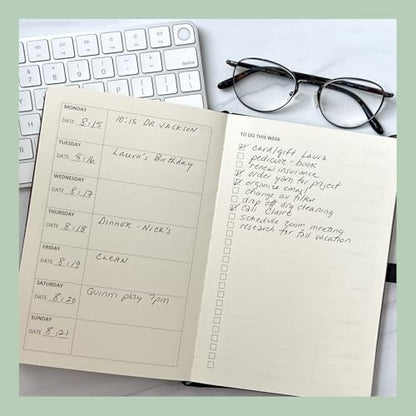 MONDAY
DATE 8/15 10:15 DR VACKSON
TUESDAY
DATE 8/16 Laura's Birthday
WEDNESDAY
DATE 8/17
THURSDAY
DATE 8/18 Dinner - Nick's
FRIDAY
DATE 8/19 CLEAN
SATURDAY
DATE 8/20 Quinn's play 7pm
SUNDAY
DATE 8/21
TO DO THIS WEEK
card/gift Laura
pedicure - book
renew insurance
order yarn for poject
organise email
change air filter
drop off dry cleaning
call Claire
schedule zoom meeting
research for fall vacation